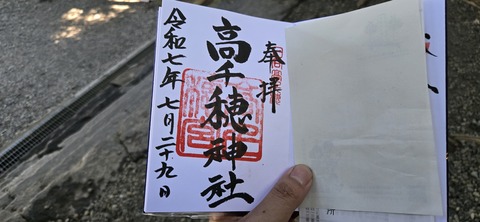 奉拝
高千穂神社
令和七年七月二十九日